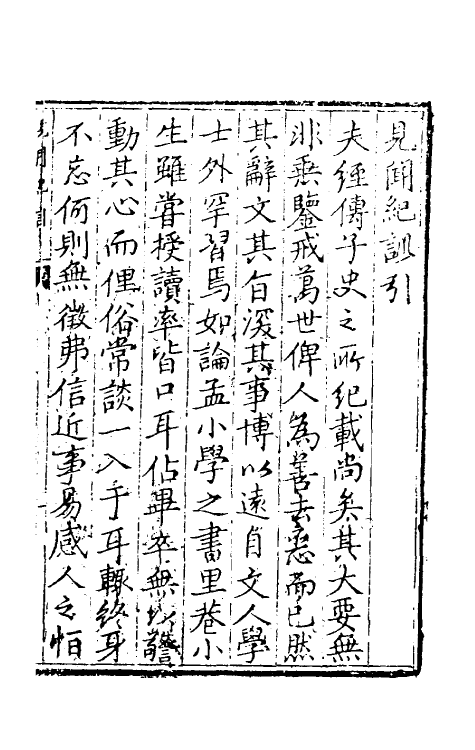 見聞紀訓引
夫經傳子史之所紀載尚矣其大要無
非垂鑒戒萬世俾人為善去惡而已然
其辭文其旨深其事博以遠自文人學
士外罕習焉如論孟小學之書里巷小
生雖嘗授讀率皆口耳佔畢卒無以警
動其心而俚俗常談一入乎耳輒終身
不忘何則無徵弗信近事易感人之恒
見聞紀訓